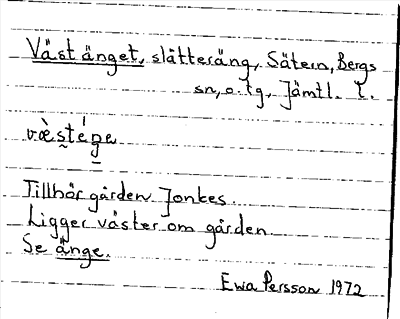 Väst änget, slåtteräng, Sätern, Bergs
sn, o. tg, Jämtl. l.
væ̀sténe
Tillhör gården Jonkes.
Ligger väster om gården.
Se änge.
Ewa Persson 1972